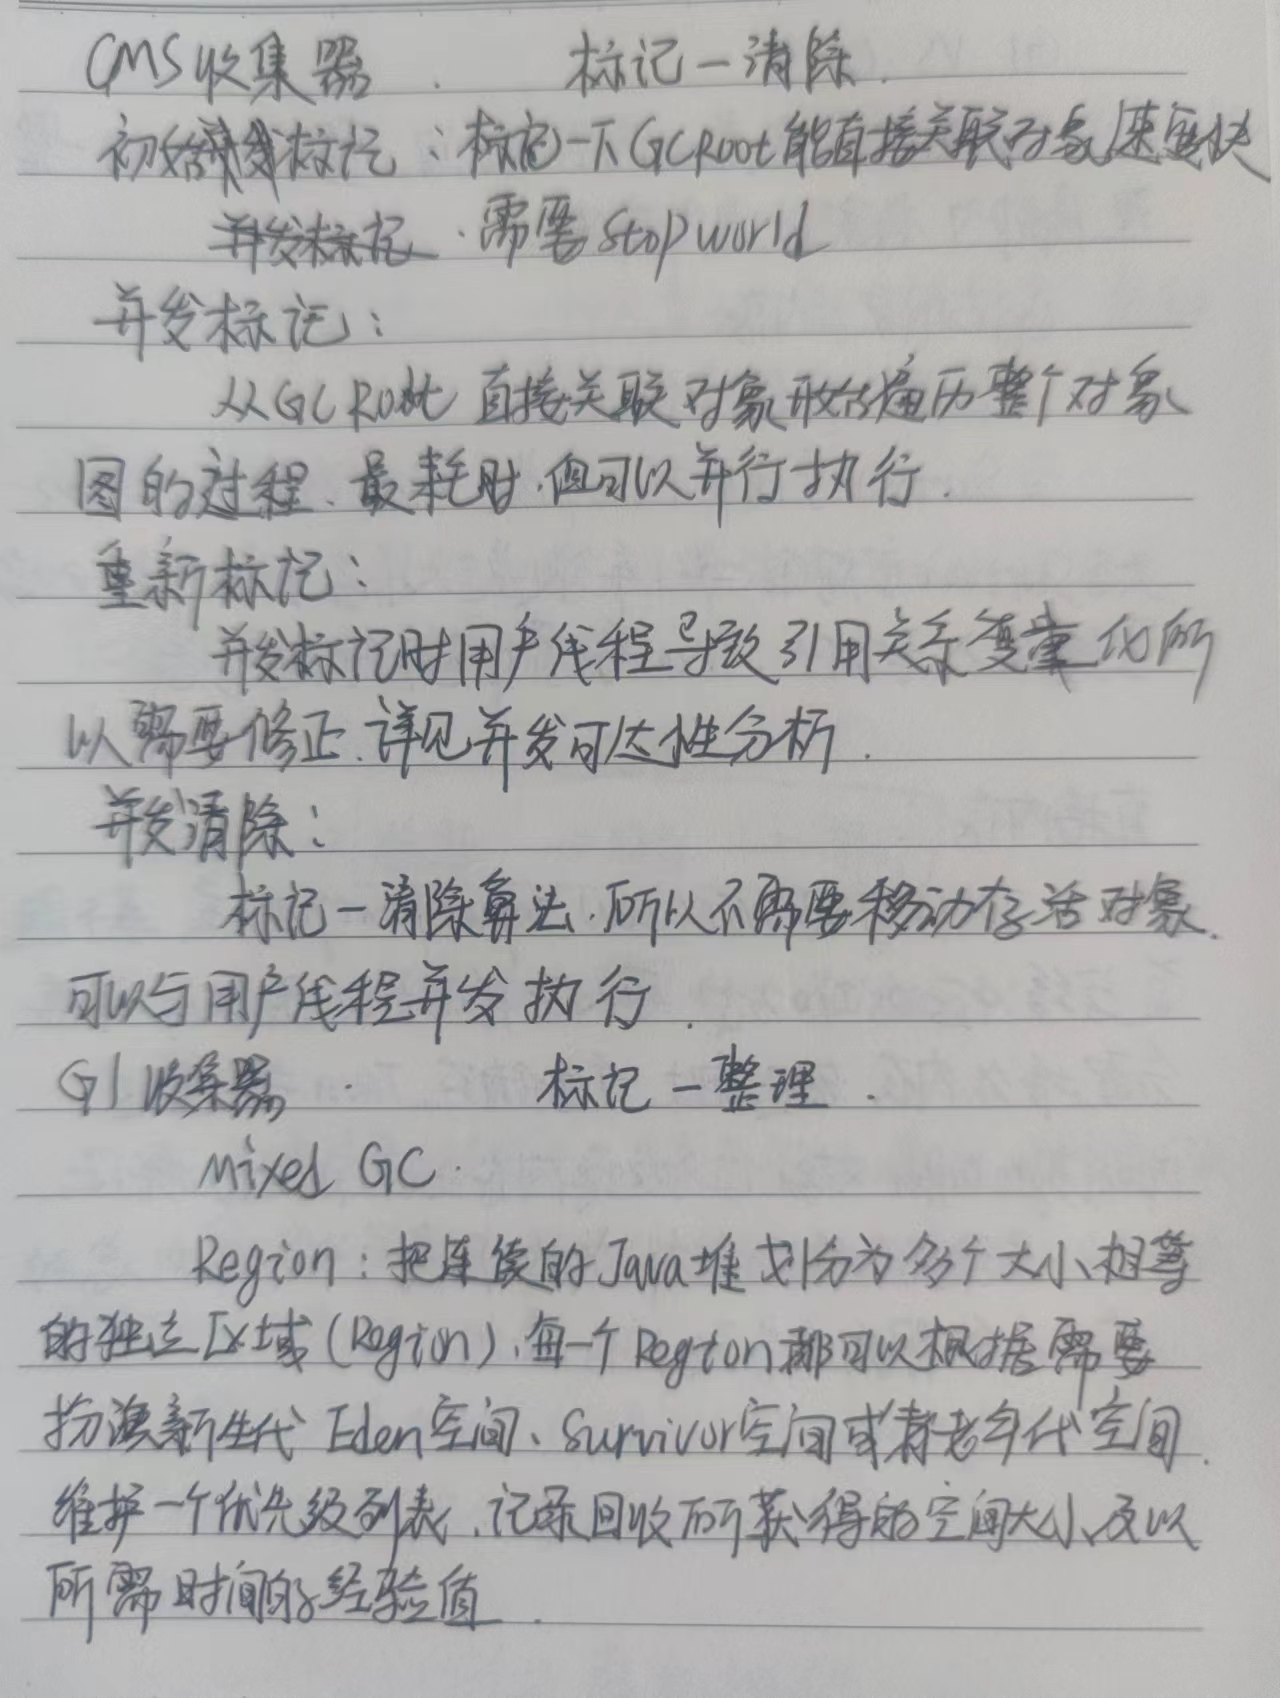 CMS收集器. 标记－清除.
初始标记：标记一下GCRoot能直接关联对象，速度快
并发标记. 需要stop world
并发标记：
从GC Root 直接关联对象开始遍历整个对象
图的过程、最耗时，但可以并行执行.
重新标记：
并发标记时用户线程导致引用关系变化所
以需要修正、详见并发可达性分析.
并发清除：
标记－清除算法，所以不需要移动存活对象.
可以与用户线程并发执行.
G1收集器. 标记－整理.
Mixed GC.
Region：把连续的Java堆划分为多个大小相等
的独立区域(Region)，每一个Region都可以根据需要
扮演新生代Eden空间、Survivor空间或者老年代空间.
维护一个优先级列表，记录回收所获得的空间大小及以
所需时间的经验值.